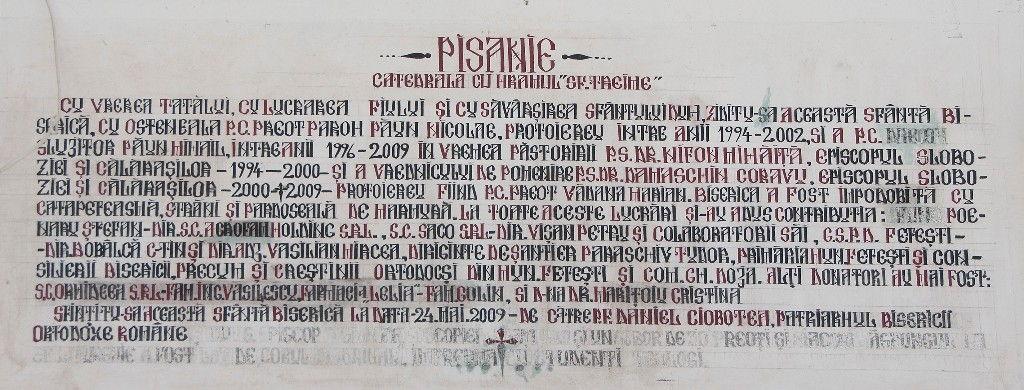 PISANIE
CATEDRALA CU HRAMUL "SF. TREIME"
CU VREREA TATĂLUI, CU LUCRAREA FIULUI ŞI CU SĂVÂRŞIREA SFÂNTULUI DUH, ZIDITU-SA ACEASTĂ SFÂNTĂ BI-
SERICĂ, CU OSTENEALA P.C. PREOT PAROH PĂUN NICOLAE, PROTOIEREU ÎNTRE ANII 1994-2002, SI A P.C.
SLUJITOR PĂUN MIHAIL, INTRE ANII 1996-2009 ÎN VREMEA PĂSTORIRII P.S. DR. NIFON MIHĂIŢĂ, EPISCOPUL SLOBO-
ZIEI ŞI CĂLĂRAŞILOR -1994-2000- ŞI A VREDNICULUI DE POMENIRE P.S. DR. DAMASCHIN CORAVU, EPISCOPUL SLOBO-
ZIEI ŞI CĂLĂRAŞILOR -2000+2009- PROTOIEREU FIIND P.C. PREOT VĂDANA MARIAN. BISERICA A FOST IMPODOBITĂ CU
CATAPETEASMĂ, STRĂNI ŞI PARDOSEALĂ DE MARMURĂ. LA TOATE ACESTE LUCRĂRI ŞI-AU ADUS CONTRIBUTIA: POE-
NARU ŞTEFAN-DIR. S.C. AGROFAM HOLDING S.R.L., S.C. SACO SRL-DIR. VISAN PETRU ŞI COLABORATORII SĂI, C.S.P.D. FETEŞTI-
-DIR. BOBÂLCĂ C-TIN ŞI DIR. ADJ. VASILIAN MIRCEA, DIRIGINTE DE ŞANTIER PARASCHIV TUDOR, PRIMĂRIA MUN. FETEŞTI ŞI CON-
SILIERII BISERICII, PRECUM ŞI CREŞTINII ORTODOCSI DIN MUN. FETEŞTI ŞI COM. GH. DOJA. ALŢI DONATORI AU MAI FOST:
S.C. ORHIDEEA S.R.L.-FAM. ING. VASILESCU, FARMACIA "LELIA"-FAM. GOLIN, SI D-NA DR. MARIŢOIU CRISTINA
SFINTITU-SA ACEASTĂ SFÂNTĂ BISERICĂ LA DATA-24. MAI. 2009-DE CĂTRE P.F. DANIEL CIOBOTEA, PATRIARHUL BISERICII
ORTODOXE ROMÂNE